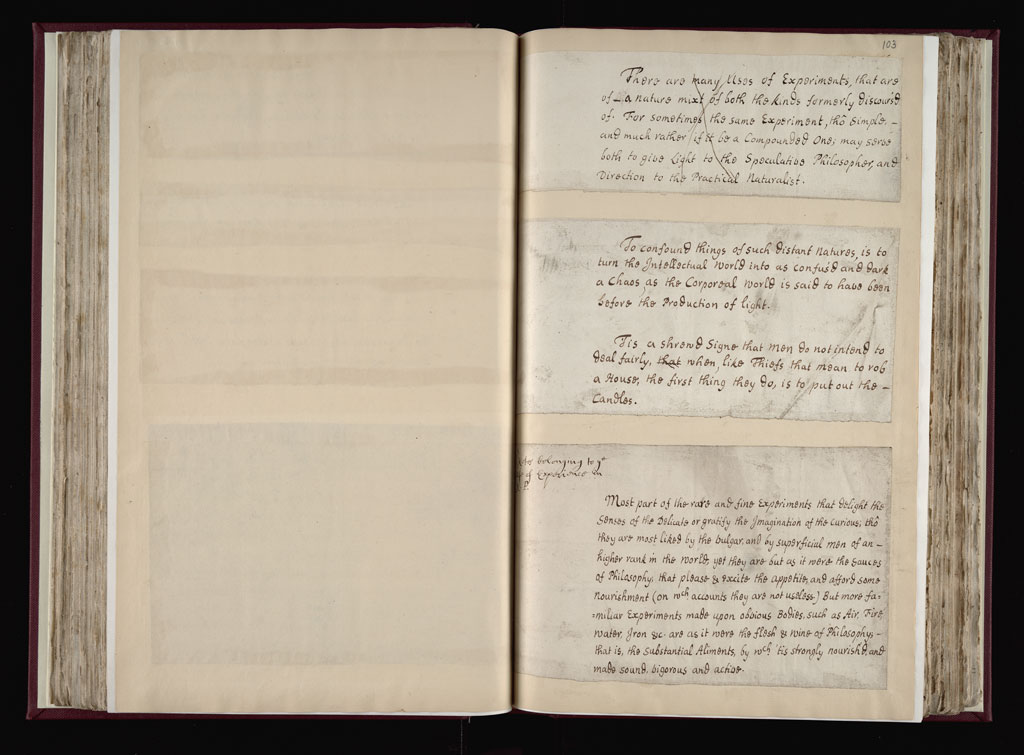 103
There are many Uses of Experiments, that are
of a nature mixt of both the kinds formerly discours'd
of. For sometimes the same Experiment, thô Simple, –
and much rather if it be a Compounded One; may serve
both to give Light to the Speculative Philosopher, and
Direction to the Practical Naturalist.
To confound things of such distant Natures, is to
turn the Intellectual World into as confus'd and dark
a Chaos, as the Corporeal World is said to have been
before the Production of light.
Tis a shrewd Signe that Men do not intend to
deal fairly, that when, like Thiefs that mean to rob
a House, the first thing they do, is to put out the –
Candles.
belonging to ye
of Experience in
Most part of the rare and fine Experiments that delight the
Senses of the Delicate or gratify the Imagination of the Curious; thô
they are most liked by the vulgar, and by superficial men of an –
higher rank in the world, yet they are but as it were the sauces
of Philosophy, that please & excite the appetite, and afford some
nourishment (on wch accounts they are not useless) But more fa=
miliar Experiments made upon obvious Bodies, such as Air, Fire
Water, Iron &c. are as it were the flesh & wine of Philosophy; –
that is, the substantial Aliments, by wch 'tis strongly nourish'd, and
made sound, vigorous and active.